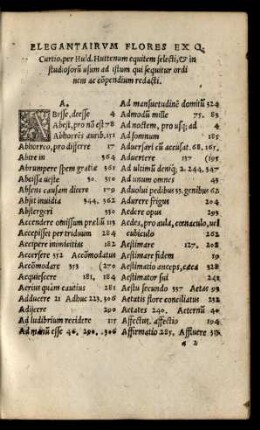 ELEGANTAIRVM FLORES EX Q.
Curtio, per Huld. Huttenum equitem selecti, & in
studiosorũ usum ad istum qui sequitur ordi
nem ac cõpendium redacti.
A.
ABesse, deesse 4
Abest, pro nõ est 78
Abhorret aurib. 151
Abhorreo, pro differre 17
Abire in 364
Abrumpere spem gratiæ 361
Abscissa ueste 50. 550
Absens causam dicere 179
Abijt inuidia 344, 362
Abstergeri 55
Accendere omissum præliũ 115
Accepisset per triduum 284
Accipere inimicitias 182
Accersere 332 Accõmodatum
Accõmodare 315 (270
Acquiescere 181, 184
Aerius quàm cautius 281
Adducere 21 Adhuc 223, 306
Adijcere 200
Ad ludibrium recidere 117
Ad manũ esse 40, 200, 306
Ad mansuetudinẽ domitũ 324
Admodũ mille 75. 83
Ad noctem, pro usq; ad 4
Ad somnum 4
Aduersari cũ accusat. 68, 165,
Aduertere 137 (195.
Ad ultimũ deniq; 2. 244, 347
Ad unum omnes 43
Aduolui pedibus 53. genibus 62
Adurere frigus 204
Aedere opus 295
Aedes, pro aula, coenaculo, uel
cubiculo 262
Aestimare 127, 208
Aestimare fidem 19
Aestimatio anceps, cæca 328
Aestimator sui 243
Aestu secundo 357 Aetas 93
Aetatis flore conciliatus 232
Aetates 240. Aeternũ 40
Affectus, affectio 194
Affirmatio 285. Affluere 50
a 2